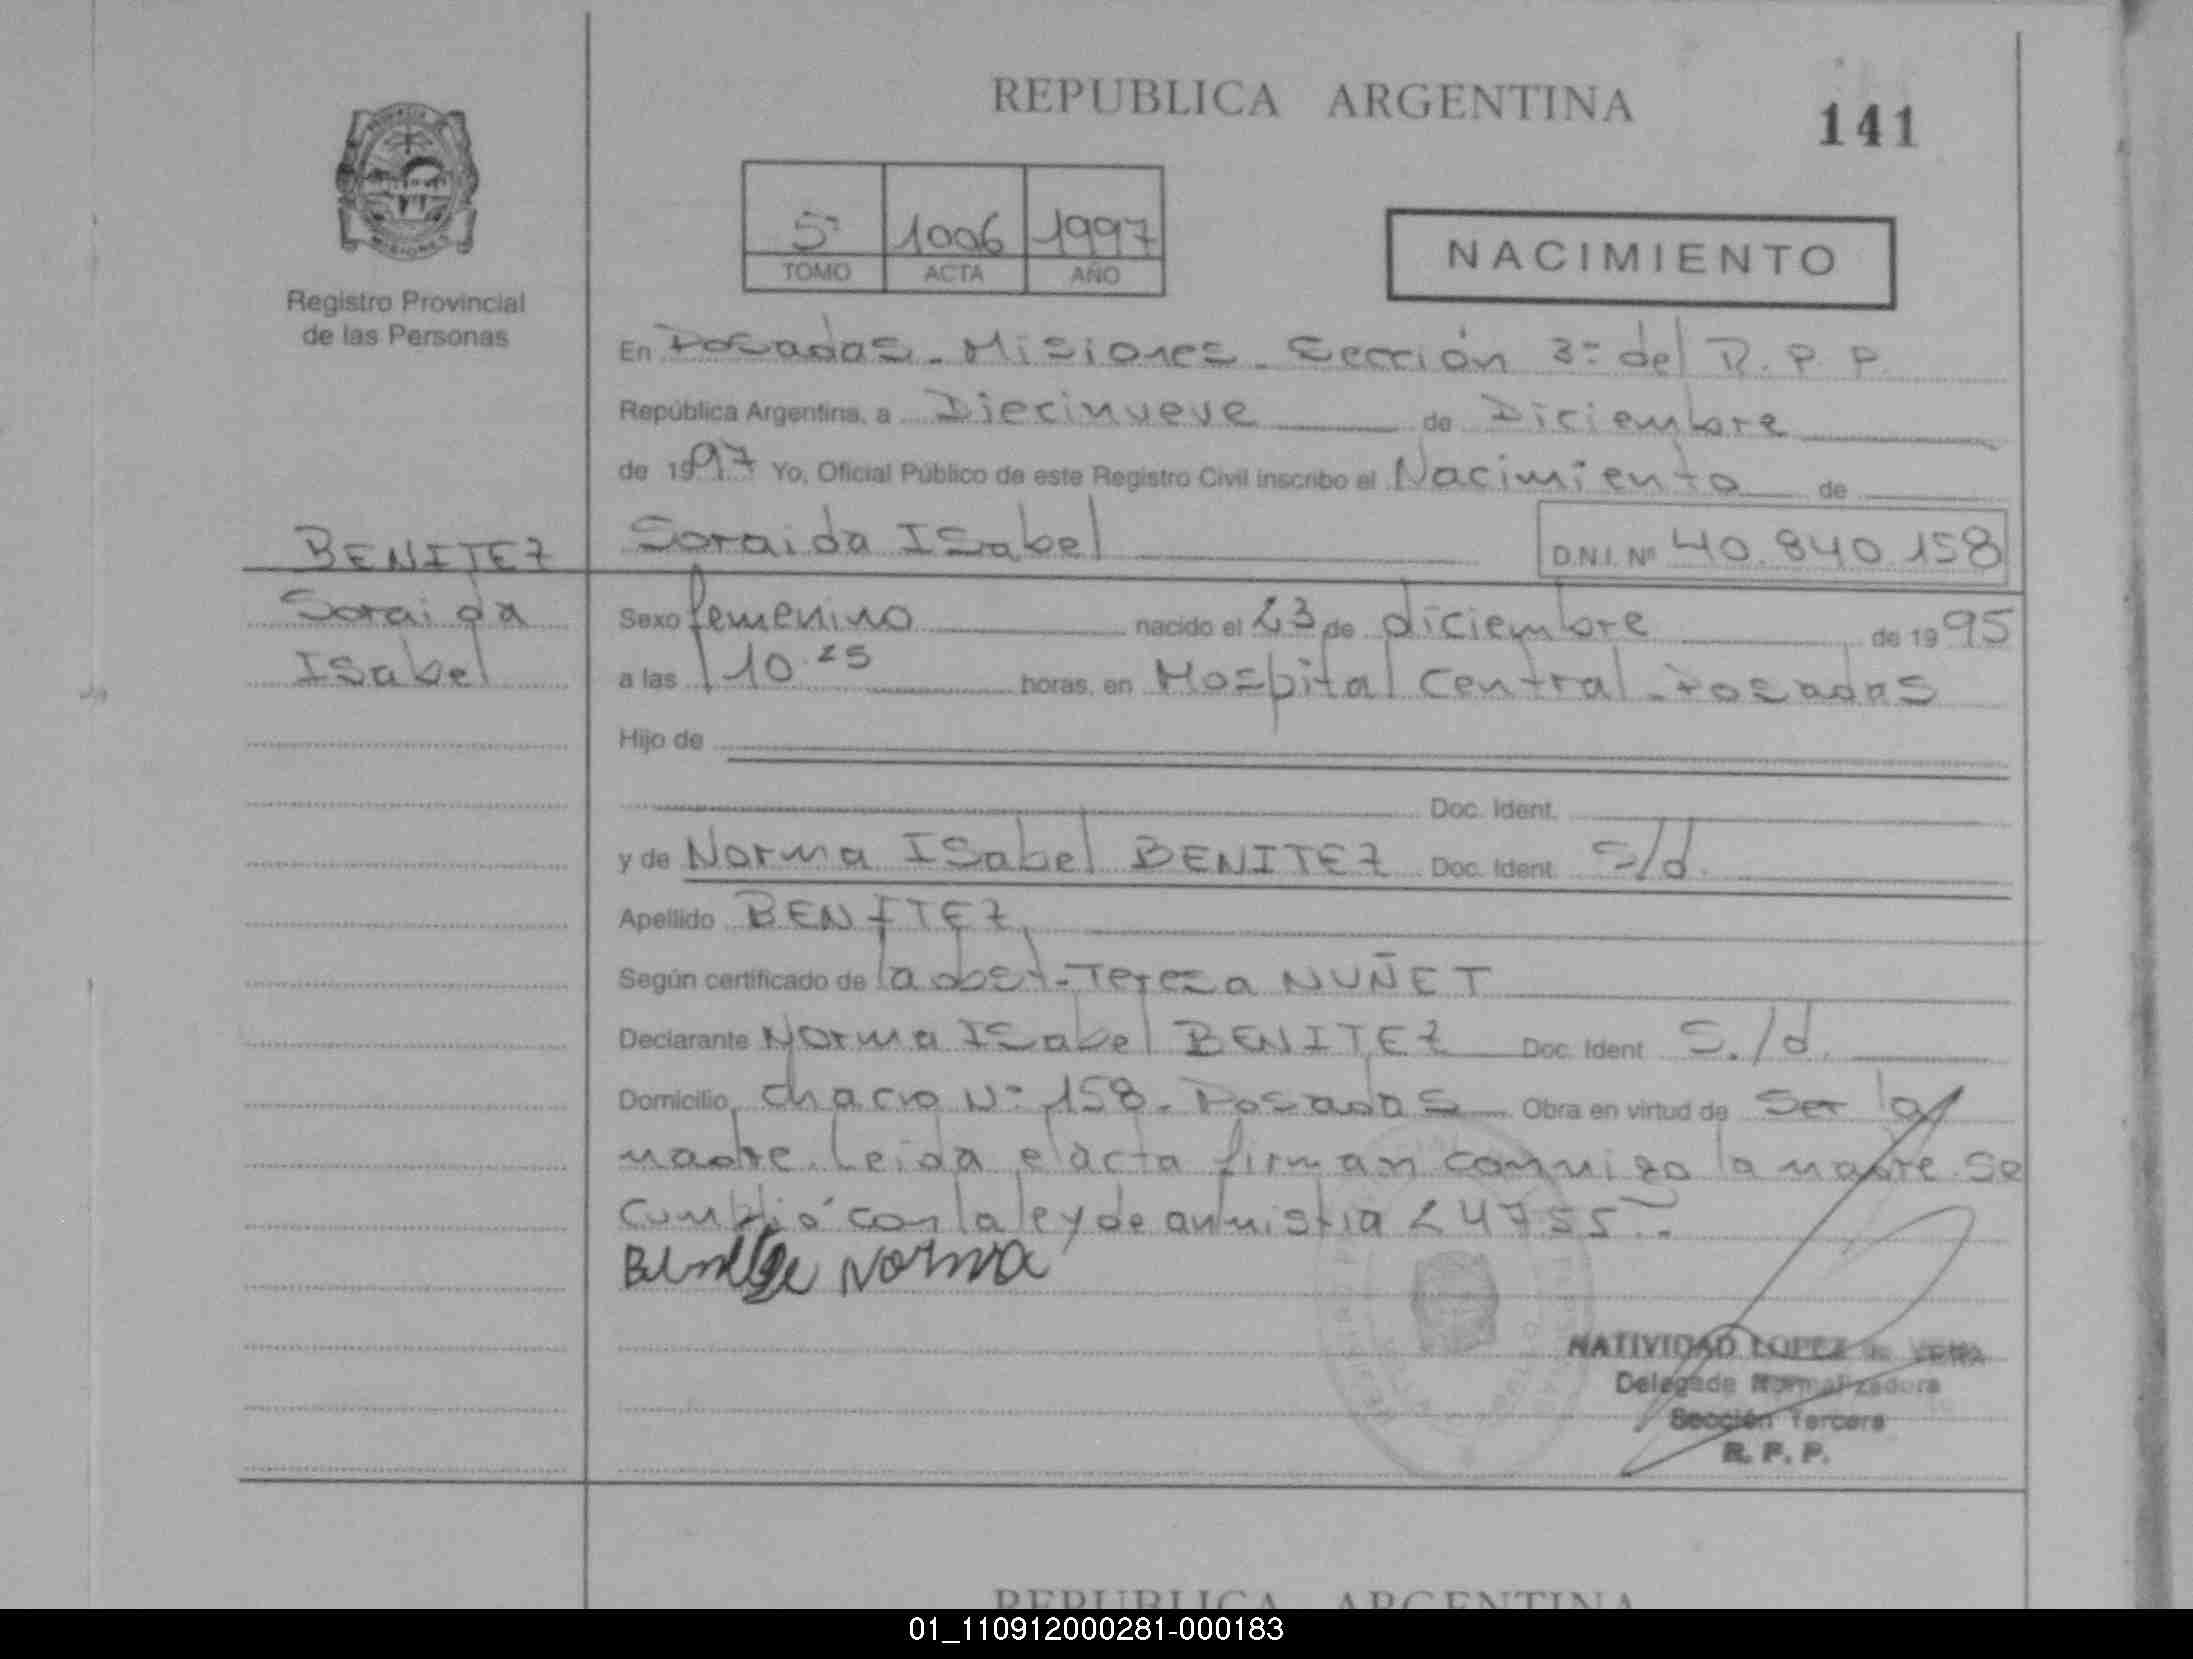 REPUBLICA ARGENTINA
141
Registro Provincial
de las Personas
5 1006 1997
TOMO ACTA AÑO
NACIMIENTO
En Posadas - Misiones - Sección 3º del R. P. P.
República Argentina, a Diecinueve de Diciembre
de 1997 Yo, Oficial Público de este Registro Civil inscribo el Nacimiento de
BENITEZ
Soraida
Isabel
Soraida Isabel D.N.I. Nº 40.840.158
Sexo femenino nacido el 23 de diciembre de 1995
a las 10.25 horas, en Hospital Central - Posadas
Hijo de
Doc. Ident.
y de Norma Isabel BENITEZ Doc. Ident. S/d.
Apellido BENITEZ
Según certificado de la obst. Teresa NUÑET
Declarante Norma Isabel BENITEZ Doc. Ident S./d.
Domicilio chacra Nº 158 - Posadas Obra en virtud de Ser la
madre. Leida el acta firman conmigo la madre. Se
cumplió con la ley de amnistia 24755
Norma
NATIVIDAD LOPEZ
Delegada Normalizadora
Sección Tercera
R. P. P.
REPUBLICA ARGENTINA
01_110912000281-000183